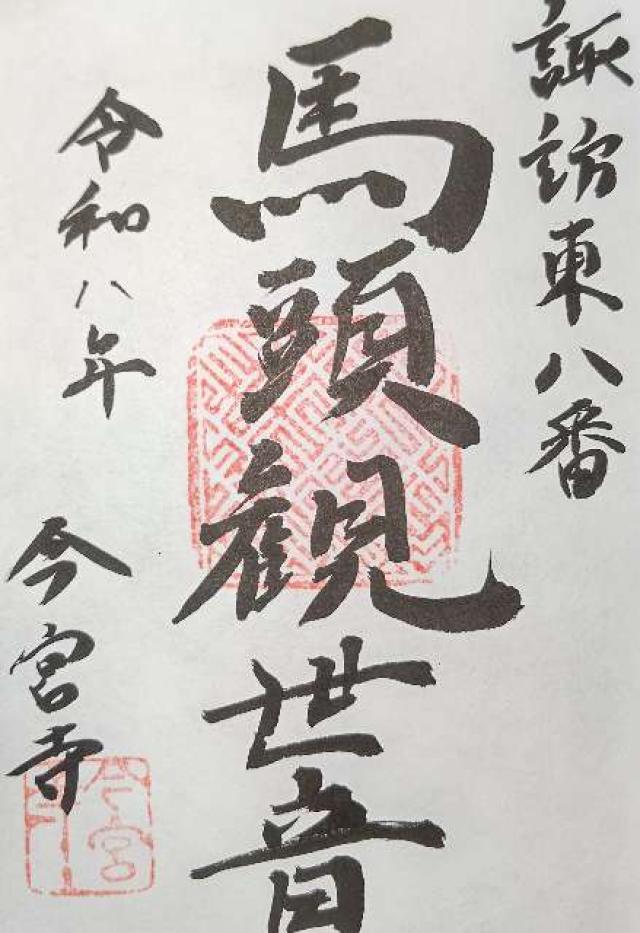 諏訪東八番
馬頭觀世音
令和八年
今宮寺
今宮